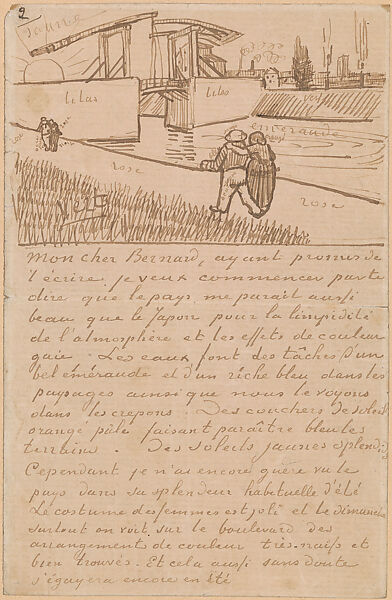 2
jaune
lilas
lilas
vert
emeraude
rose
rose
vert
Mon cher Bernard, ayant promis de
t'écrire je veux commencer par te
dire que le pays me parait aussi
beau que le Japon pour la limpidité
de l'atmosphère et les effets de couleur
gaie. Les eaux font des tâches d'un
bel éméraude et d'un riche bleu dans les
paysages ainsi que nous le voyons
dans les crepons. Des couchers de soleil
orangé pâle faisant paraître bleu les
terrains. Des soleils jaunes splendides
Cependant je n'ai encore guère vu le
pays dans sa splendeur habituelle d'été
Le costume des femmes est joli et le dimanche
surtout on voit sur le boulevard des
arrangement de couleur très naifs et
bien trouvés. Et cela aussi sans doute
s'égayera encore en été